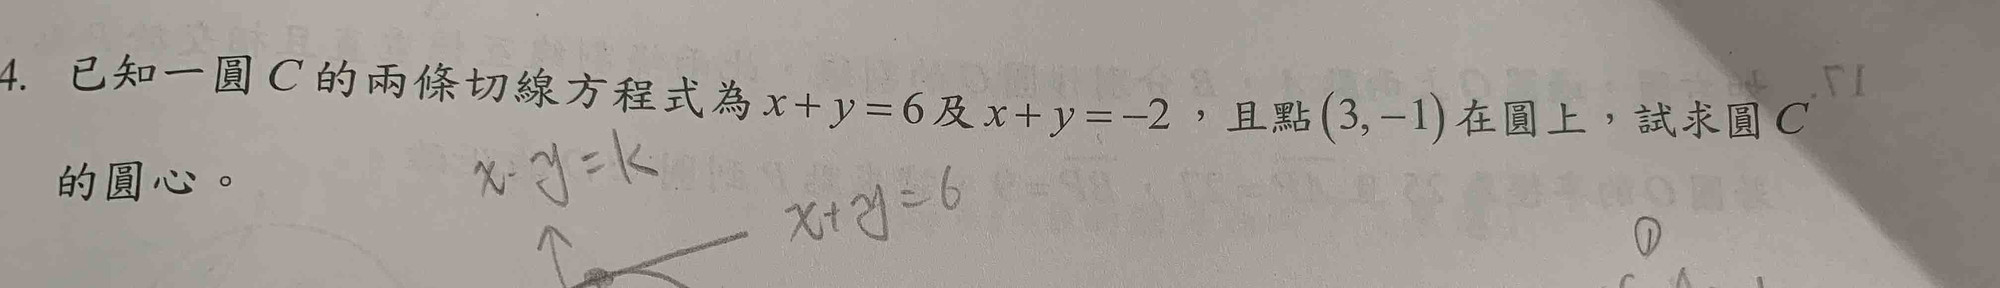 4. 已知一圓 C 的兩條切線方程式為 x + y = 6 及 x + y = −2，且點 (3, −1) 在圓上，試求圓 C
的圓心。
x - y = k
x + y = 6
①